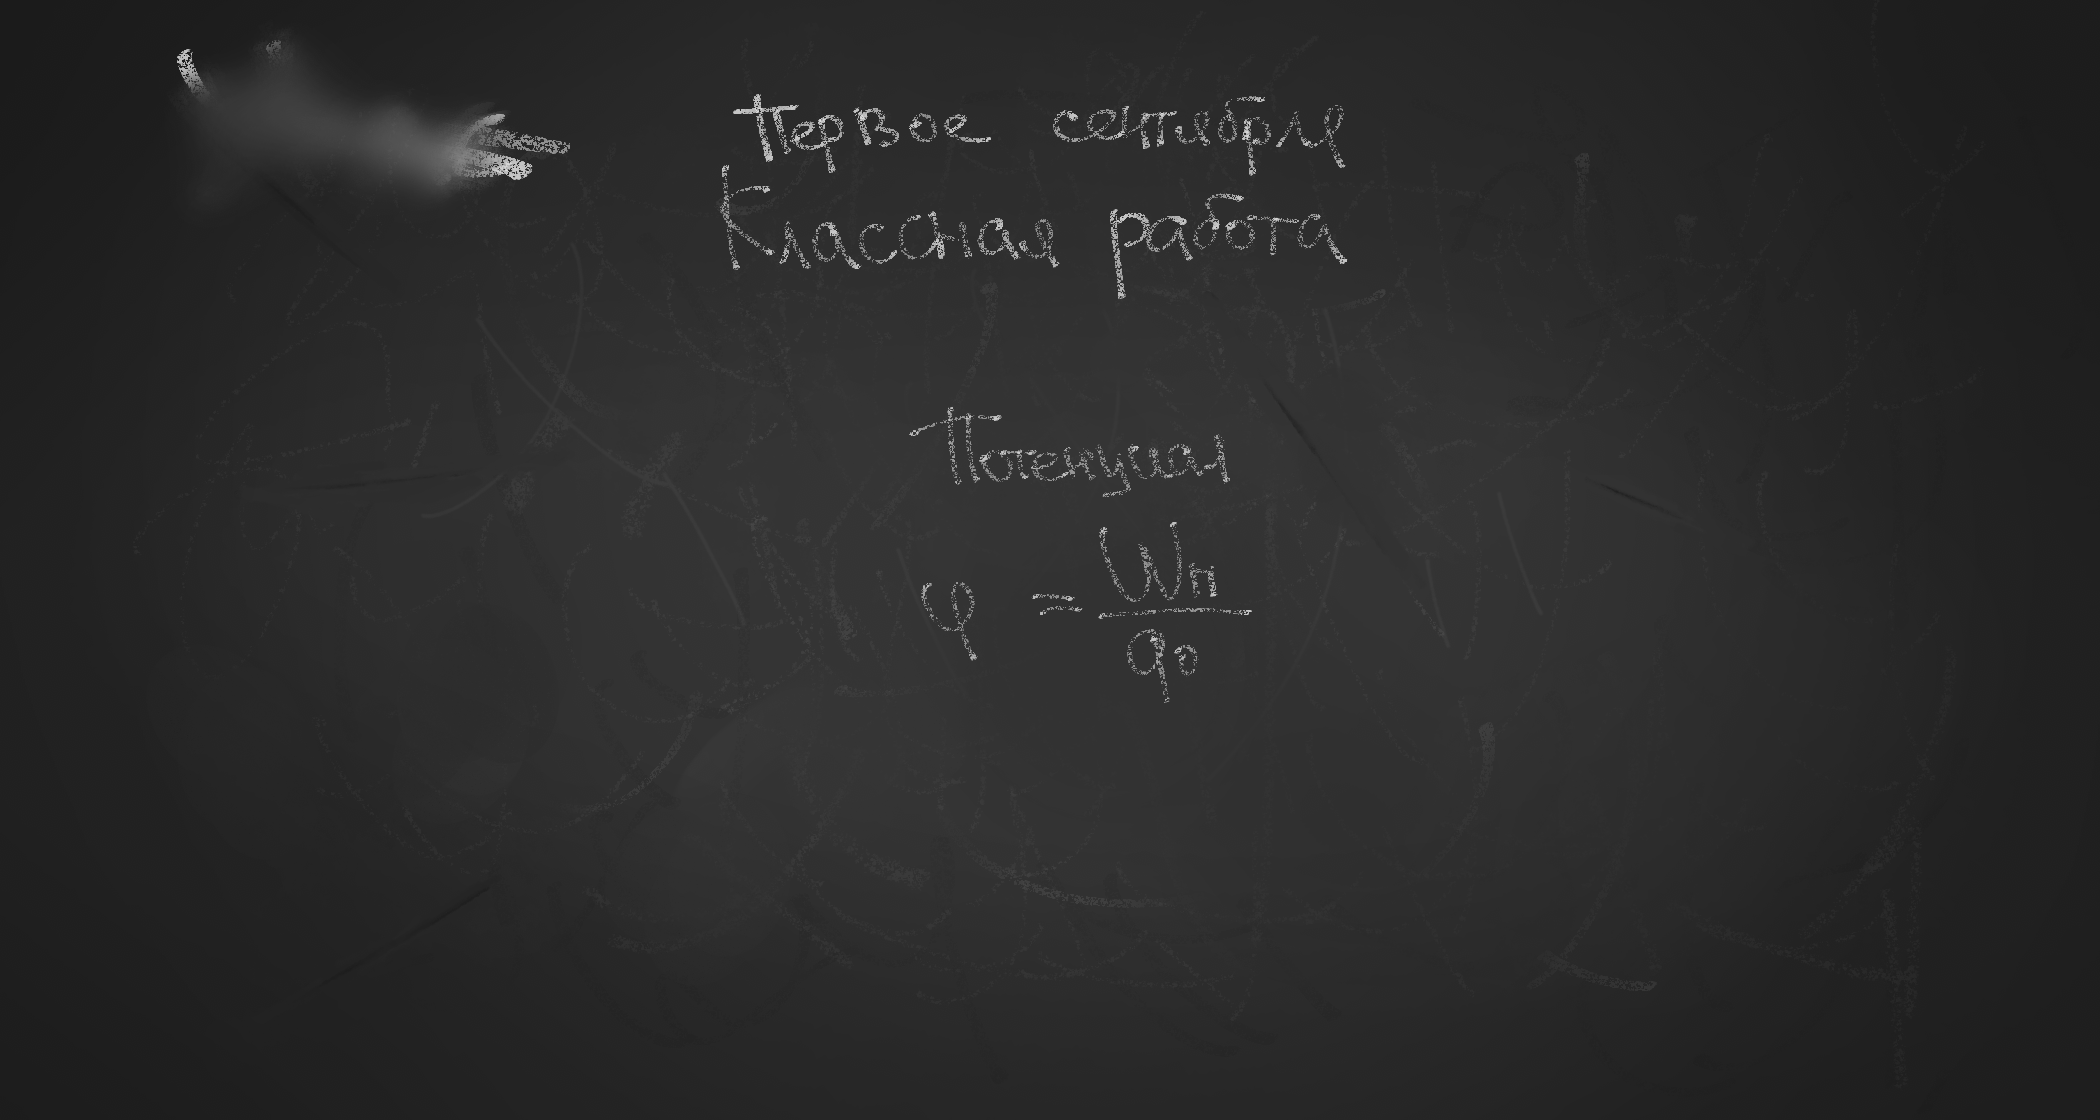 Первое сентября
Классная работа
Потенциал
φ = Wп/q0